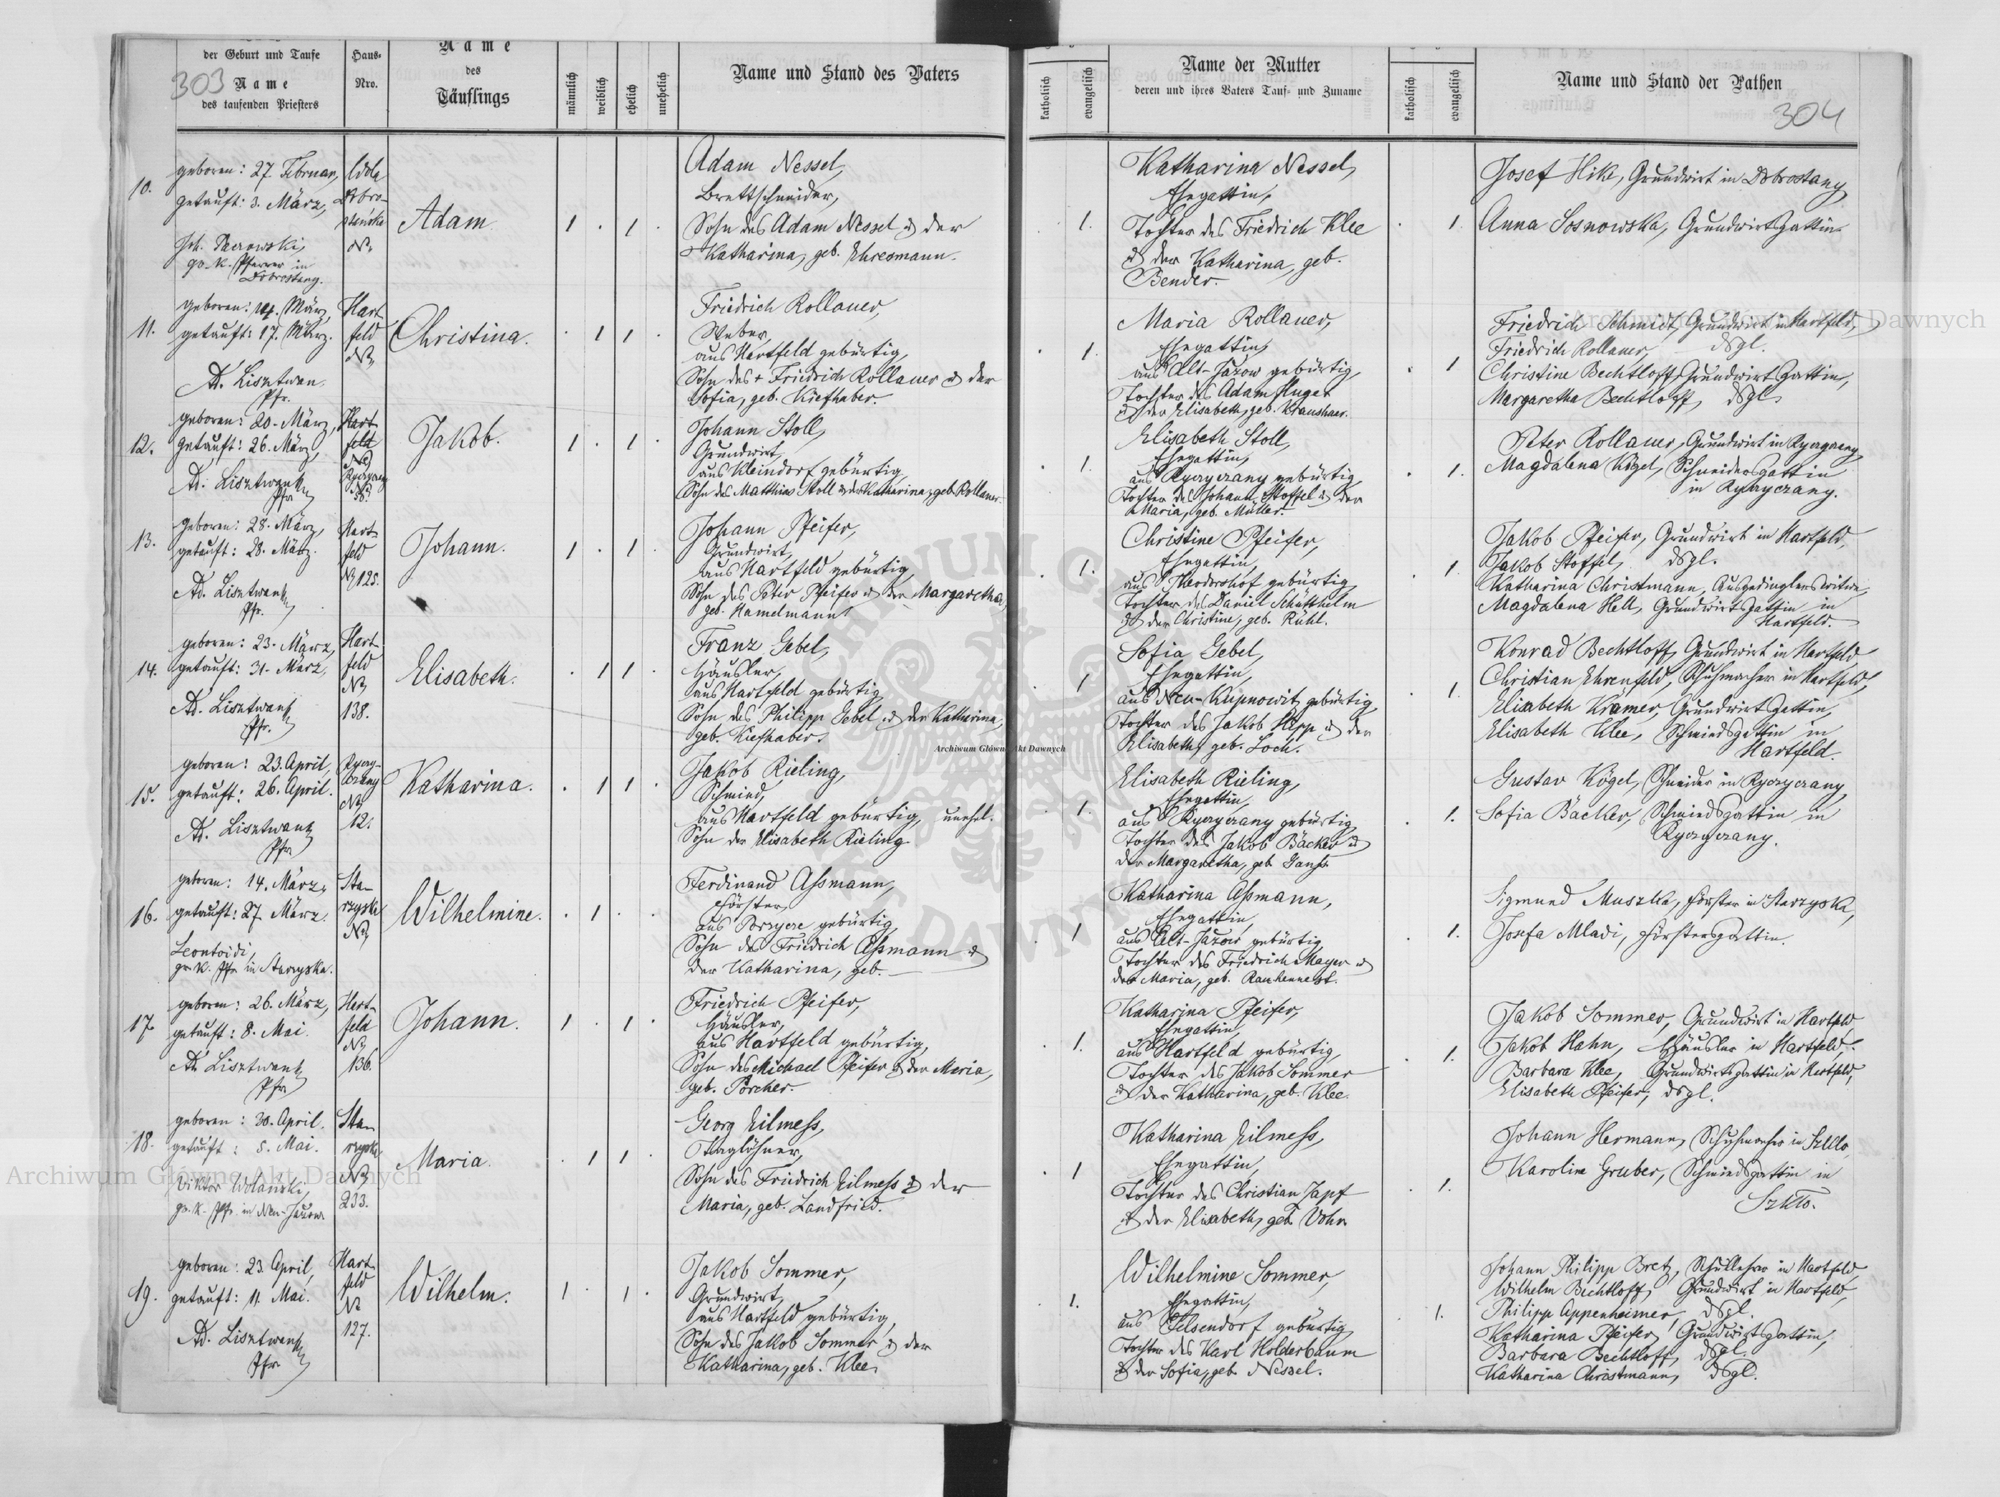 303
der Geburt und Taufe
Name
des taufenden Priesters
Haus-
Nro.
Name
des
Täuflings
männlich
weiblich
ehelich
unehelich
Name und Stand des Vaters
katholisch
evangelisch
Name der Mutter
deren und ihres Vaters Tauf- und Zuname
katholisch
evangelisch
Name und Stand der Pathen
304
10.
geboren: 27. Februar,
getauft: 3. März,
gr. k. Pfarrer in
Dobrostany.
Adam
1 . 1 .
Adam Nessel,
Brettschneider,
Sohn des Adam Nessel u. der
Katharina, geb. Ehresmann.
. 1.
Katharina Nessel,
Ehegattin,
Tochter des Friedrich Klee
u. der Katharina, geb.
Bender.
. 1.
Josef Hik, Grundwirt in Dobrostany,
Anna Sosnowska, Grundwirtsgattin
11.
geboren: 14. März,
getauft: 17. März.
Ad. Lisztwan
Pfr.
Hart-
feld
No
Christina.
. 1 1 .
Friedrich Rollauer,
Weber,
aus Hartfeld gebürtig,
Sohn des + Friedrich Rollauer u. der
Sofia, geb. Kiefhaber.
. 1.
Maria Rollauer,
Ehegattin,
aus Alt-Jazow gebürtig,
Tochter des Adam Huger
u. der Elisabeth, geb. Kraushaar.
. 1
Friedrich Schmidt, Grundwirt in Hartfeld,
Friedrich Rollauer, dsgl.
Christine Bechtloff, Grundwirtsgattin,
Margaretha Bechtloff, dsgl.
12.
geboren: 20. März,
getauft: 26. März,
Ad. Lisztwan
Pfr.
Hart-
feld
Jakob.
1 . 1 .
Johann Stoll,
Grundwirt,
aus Kleindorf gebürtig,
Sohn des Matthias Stoll u. der Katharina, geb. Rollauer.
. 1.
Elisabeth Stoll,
Ehegattin,
aus Ryczyczany gebürtig,
Tochter des Johann Stoffel u. der
Maria, geb. Müller.
. 1.
Peter Rollauer, Grundwirt in Ryczyczany,
Magdalena Kögel, Schneidersgattin
in Ryczyczany.
13.
geboren: 28. März,
getauft: 28. März.
Ad. Lisztwan
Pfr.
Hart-
feld
No 125.
Johann.
1 . 1 .
Johann Pfeifer,
Grundwirt,
aus Hartfeld gebürtig,
Sohn des Peter Pfeifer u. der Margaretha,
geb. Hamelmann
. 1.
Christine Pfeifer,
Ehegattin,
gebürtig,
Tochter des Daniel Schütthelm
u. der Christine, geb. Rühl.
. 1
Jakob Pfeifer, Grundwirt in Hartfeld,
Jakob Stoffel, dsgl.
Katharina Christmann, Ausgedinglerswitwe,
Magdalena Hell, Grundwirtsgattin in
Hartfeld.
14.
geboren: 23. März,
getauft: 31. März,
Ad. Lisztwan
Pfr.
Hart-
feld
No
138.
Elisabeth.
. 1 1 .
Franz Gebel,
Häusler,
aus Hartfeld gebürtig,
Sohn des Philipp Gebel u. der Katharina,
geb. Kiefhaber.
. 1
Sofia Gebel,
Ehegattin,
aus Neu-Kupnowitz gebürtig,
Tochter des Jakob Hipp u. der
Elisabeth, geb. Loch.
. 1
Konrad Bechtloff, Grundwirt in Hartfeld,
Christian Ehrenfeld, Schuhmacher in Hartfeld,
Elisabeth Kramer, Grundwirtsgattin,
Elisabeth Klee, Schmiedsgattin in
Hartfeld.
15.
geboren: 23. April,
getauft: 26. April.
Ad. Lisztwan
Pfr.
No
12.
Katharina.
. 1 1 .
Jakob Rieling,
Schmied,
aus Hartfeld gebürtig, unehel.
Sohn der Elisabeth Rieling
. 1.
Elisabeth Rieling,
Ehegattin,
aus Ryczyczany gebürtig,
Tochter des Jakob Bäcker u.
der Margaretha, geb.
. 1.
Gustav Kögel, Schneider in Ryczyczany,
Sofia Bäcker, Schmiedsgattin in
Ryczyczany.
16.
geboren: 14. März,
getauft: 27. März.
gr. k. Pfr. in Starzyska.
Sta-
rzyska
No
Wilhelmine.
. 1 . .
Ferdinand Aßmann,
Förster,
gebürtig,
Sohn des Friedrich Aßmann u.
der Katharina, geb. —
. 1
Katharina Aßmann,
Ehegattin,
aus Alt-Jazow gebürtig,
Tochter des Friedrich Mayer u.
der Maria, geb.
. 1.
Sigmund Muszka, Förster in Starzyska,
Josefa Mladi, Förstersgattin.
17.
geboren: 26. März,
getauft: 8. Mai.
Ad. Lisztwan
Pfr.
Hart-
feld
No
136.
Johann.
1 . 1 .
Friedrich Pfeifer,
Häusler,
aus Hartfeld gebürtig,
Sohn des Michael Pfeifer u. der Maria,
geb. Porcher.
. 1.
Katharina Pfeifer,
Ehegattin,
aus Hartfeld gebürtig,
Tochter des Jakob Sommer
u. der Katharina, geb. Klee.
. 1.
Jakob Sommer, Grundwirt in Hartfeld,
Jakob Hahn, Häusler in Hartfeld,
Barbara Klee, Grundwirtsgattin in Hartfeld,
Elisabeth Pfeifer, dsgl.
18.
geboren: 30. April.
getauft: 5. Mai.
Viktor Wolanski,
gr. k. Pfr. in Neu-Jazow
Sta-
rzyska
No
233.
Maria.
. 1 1 .
Georg Eilmess,
Taglöhner,
Sohn des Friedrich Eilmess u. der
Maria, geb. Landfried.
. 1
Katharina Eilmess,
Ehegattin,
Tochter des Christian Zapf
u. der Elisabeth, geb. Vohn
. 1.
Johann Hermann, Schuhmacher in Szkło,
Karoline Gruber, Schmiedsgattin in
Szkło.
19.
geboren: 23. April,
getauft: 11. Mai.
Ad. Lisztwan
Pfr.
Hart-
feld
No
127.
Wilhelm.
1 . 1 .
Jakob Sommer,
Grundwirt,
aus Hartfeld gebürtig,
Sohn des Jakob Sommer u. der
Katharina, geb. Klee.
. 1.
Wilhelmine Sommer,
Ehegattin,
aus Felsendorf gebürtig,
Tochter des Karl Holderbaum
u. der Sofia, geb. Nessel.
. 1.
Johann Philipp Bretz, Schullehrer in Hartfeld
Wilhelm Bechtloff, Grundwirt in Hartfeld,
Philipp Appenheimer, dsgl.
Katharina Pfeifer, Grundwirtsgattin,
Barbara Bechtloff, dsgl.
Katharina Christmann, dsgl.
Archiwum Główne Akt Dawnych
Archiwum Główne Akt Dawnych
Archiwum Główne Akt Dawnych